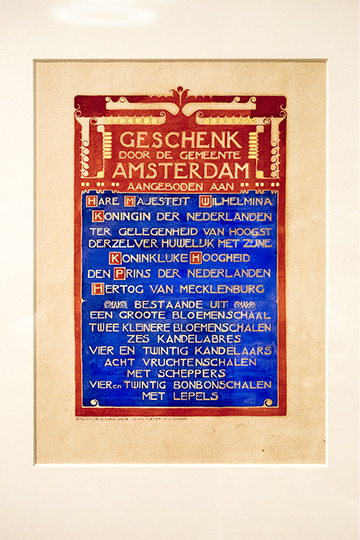 GESCHENK
DOOR DE GEMEENTE
AMSTERDAM
AANGEBODEN AAN
HARE MAJESTEIT WILHELMINA
KONINGIN DER NEDERLANDEN
TER GELEGENHEID VAN HOOGST
DERZELVER HUWELIJK MET ZIJNE
KONINKLIJKE HOOGHEID
DEN PRINS DER NEDERLANDEN
HERTOG VAN MECKLENBURG
BESTAANDE UIT
EEN GROOTE BLOEMENSCHAAL
TWEE KLEINERE BLOEMENSCHALEN
ZES KANDELABRES
VIER EN TWINTIG KANDELAARS
ACHT VRUCHTENSCHALEN
MET SCHEPPERS
VIER en TWINTIG BONBONSCHALEN
MET LEPELS